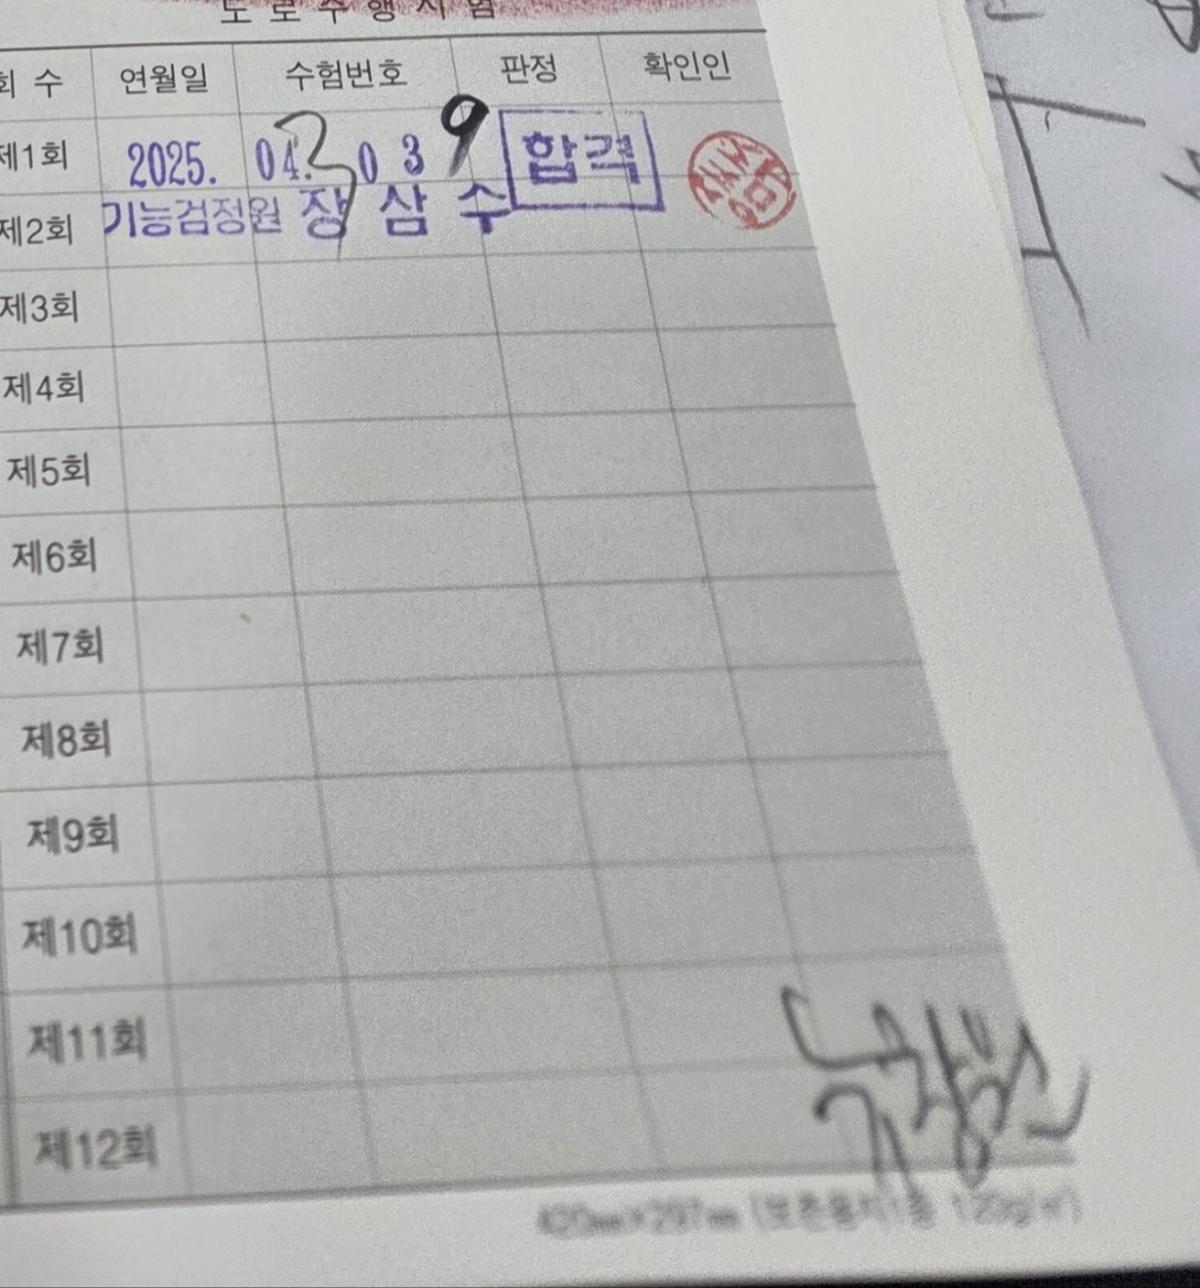 도로주행시험
회 수 연월일 수험번호 판정 확인인
제1회 2025. 04. 30 39 합격
제2회 기능검정원 장 삼 수
제3회
제4회
제5회
제6회
제7회
제8회
제9회
제10회
제11회
제12회
420㎜×297㎜ (보존용지1종 120g/㎡)